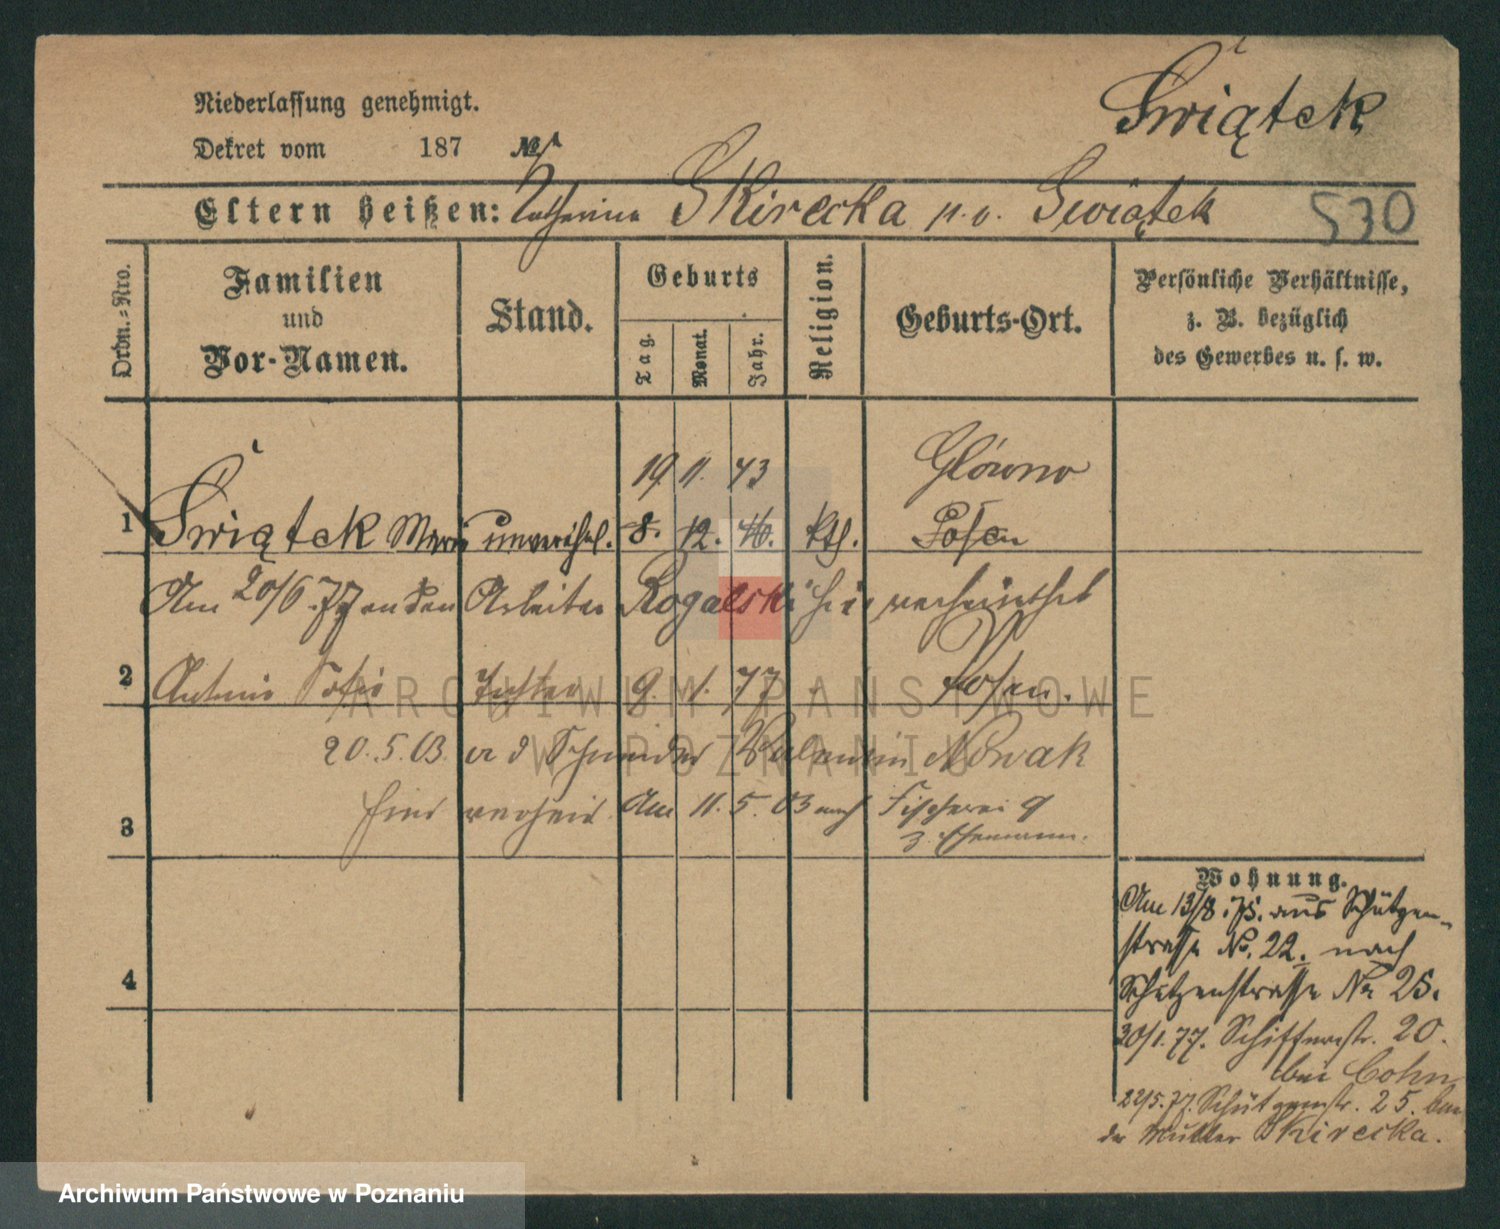 Świątek
Niederlassung genehmigt.
Dekret vom 187 No
Eltern heißen: Catharina Skirecka p. v. Świątek
530
Ordn.-Nro.
Familien und Vor-Namen.
Stand.
Geburts
Tag. Monat. Jahr.
Religion.
Geburts-Ort.
Persönliche Verhältnisse,
z. B. bezüglich
des Gewerbes u. s. w.
19. 11. 43 Główno
1 Świątek Marie unverehel. 8. 12. 46. kth. Posen
Am 20/6. 77 an den Arbeiter Rogalski hier verheirathet
2 Antonie Sofie Tochter 9. 1. 77 Posen.
20.5.03 a d Schneider Valentin Nowak
3 hier verheir. Am 11. 5. 03 nach Fischerei 9
z. Ehemann.
4
Wohnung.
Am 13/8. 75. aus Schützen-
strasse No. 22. nach
Schützenstrasse No 25.
30/1. 77. Schifferstr. 20.
bei Cohn
22/5. 77. Schützenstr. 25. bei
der Mutter Skirecka.
ARCHIWUM PAŃSTWOWE
W POZNANIU
Archiwum Państwowe w Poznaniu